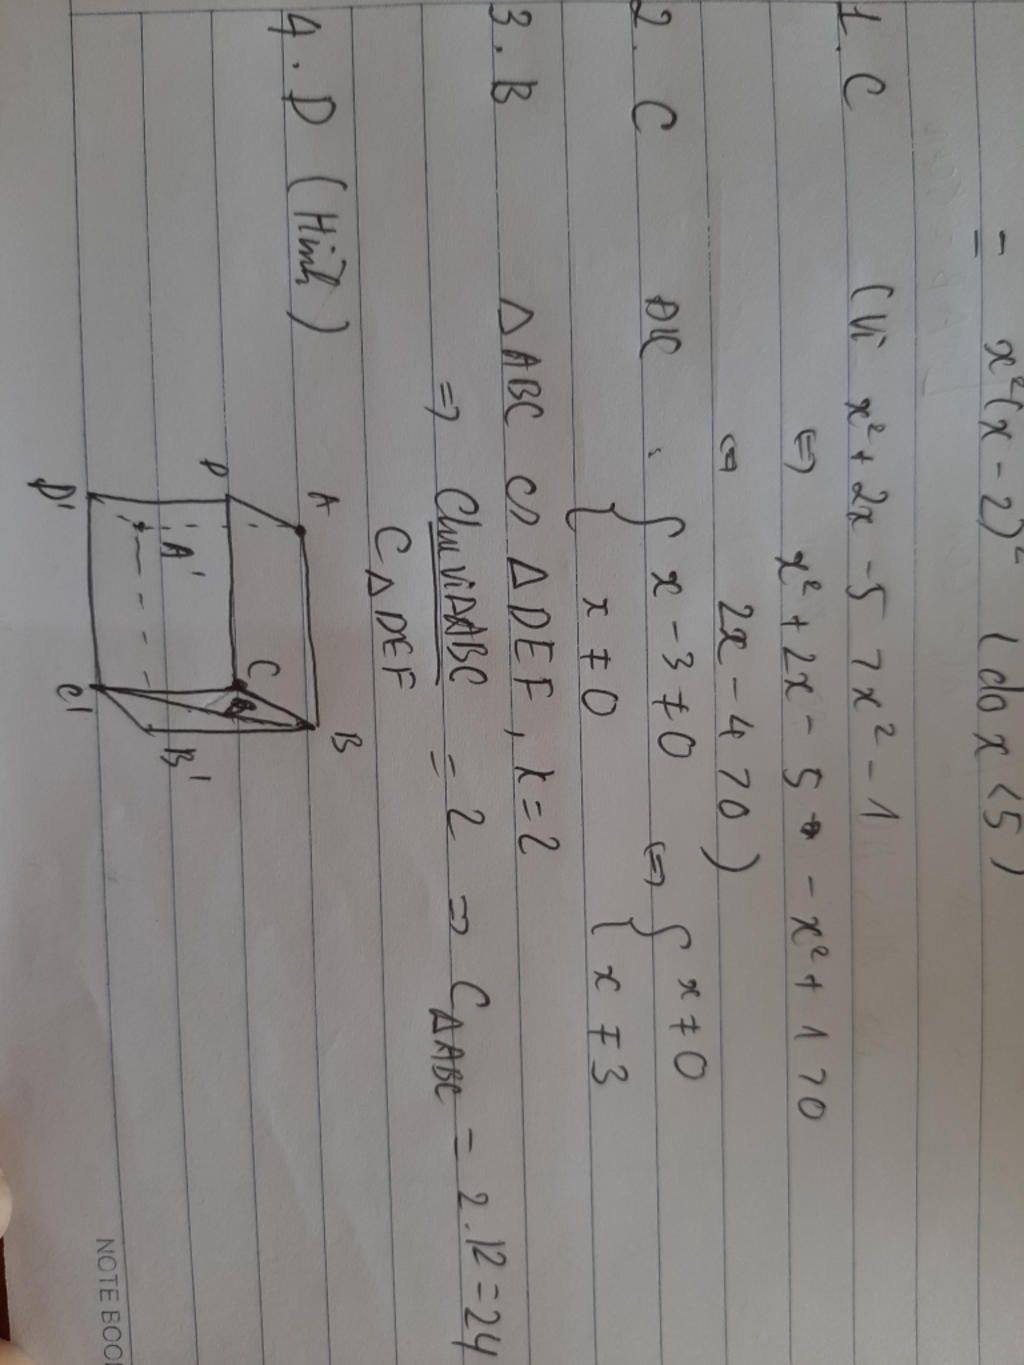 = x²(x - 2)² (do x < 5)
1. C (Vì x² + 2x - 5 > x² - 1
⇔ x² + 2x - 5 - x² + 1 > 0
⇔ 2x - 4 > 0 )
2. C ĐK : { x - 3 ≠ 0 ⇔ { x ≠ 0
x ≠ 0 x ≠ 3
3. B △ABC ∽ △DEF, k = 2
⇒ Chu vi △ABC = 2 ⇒ C△ABC = 2.12 = 24
C△DEF
4. D (Hình)
A B
D C
A' B'
D' C'
NOTE BOO